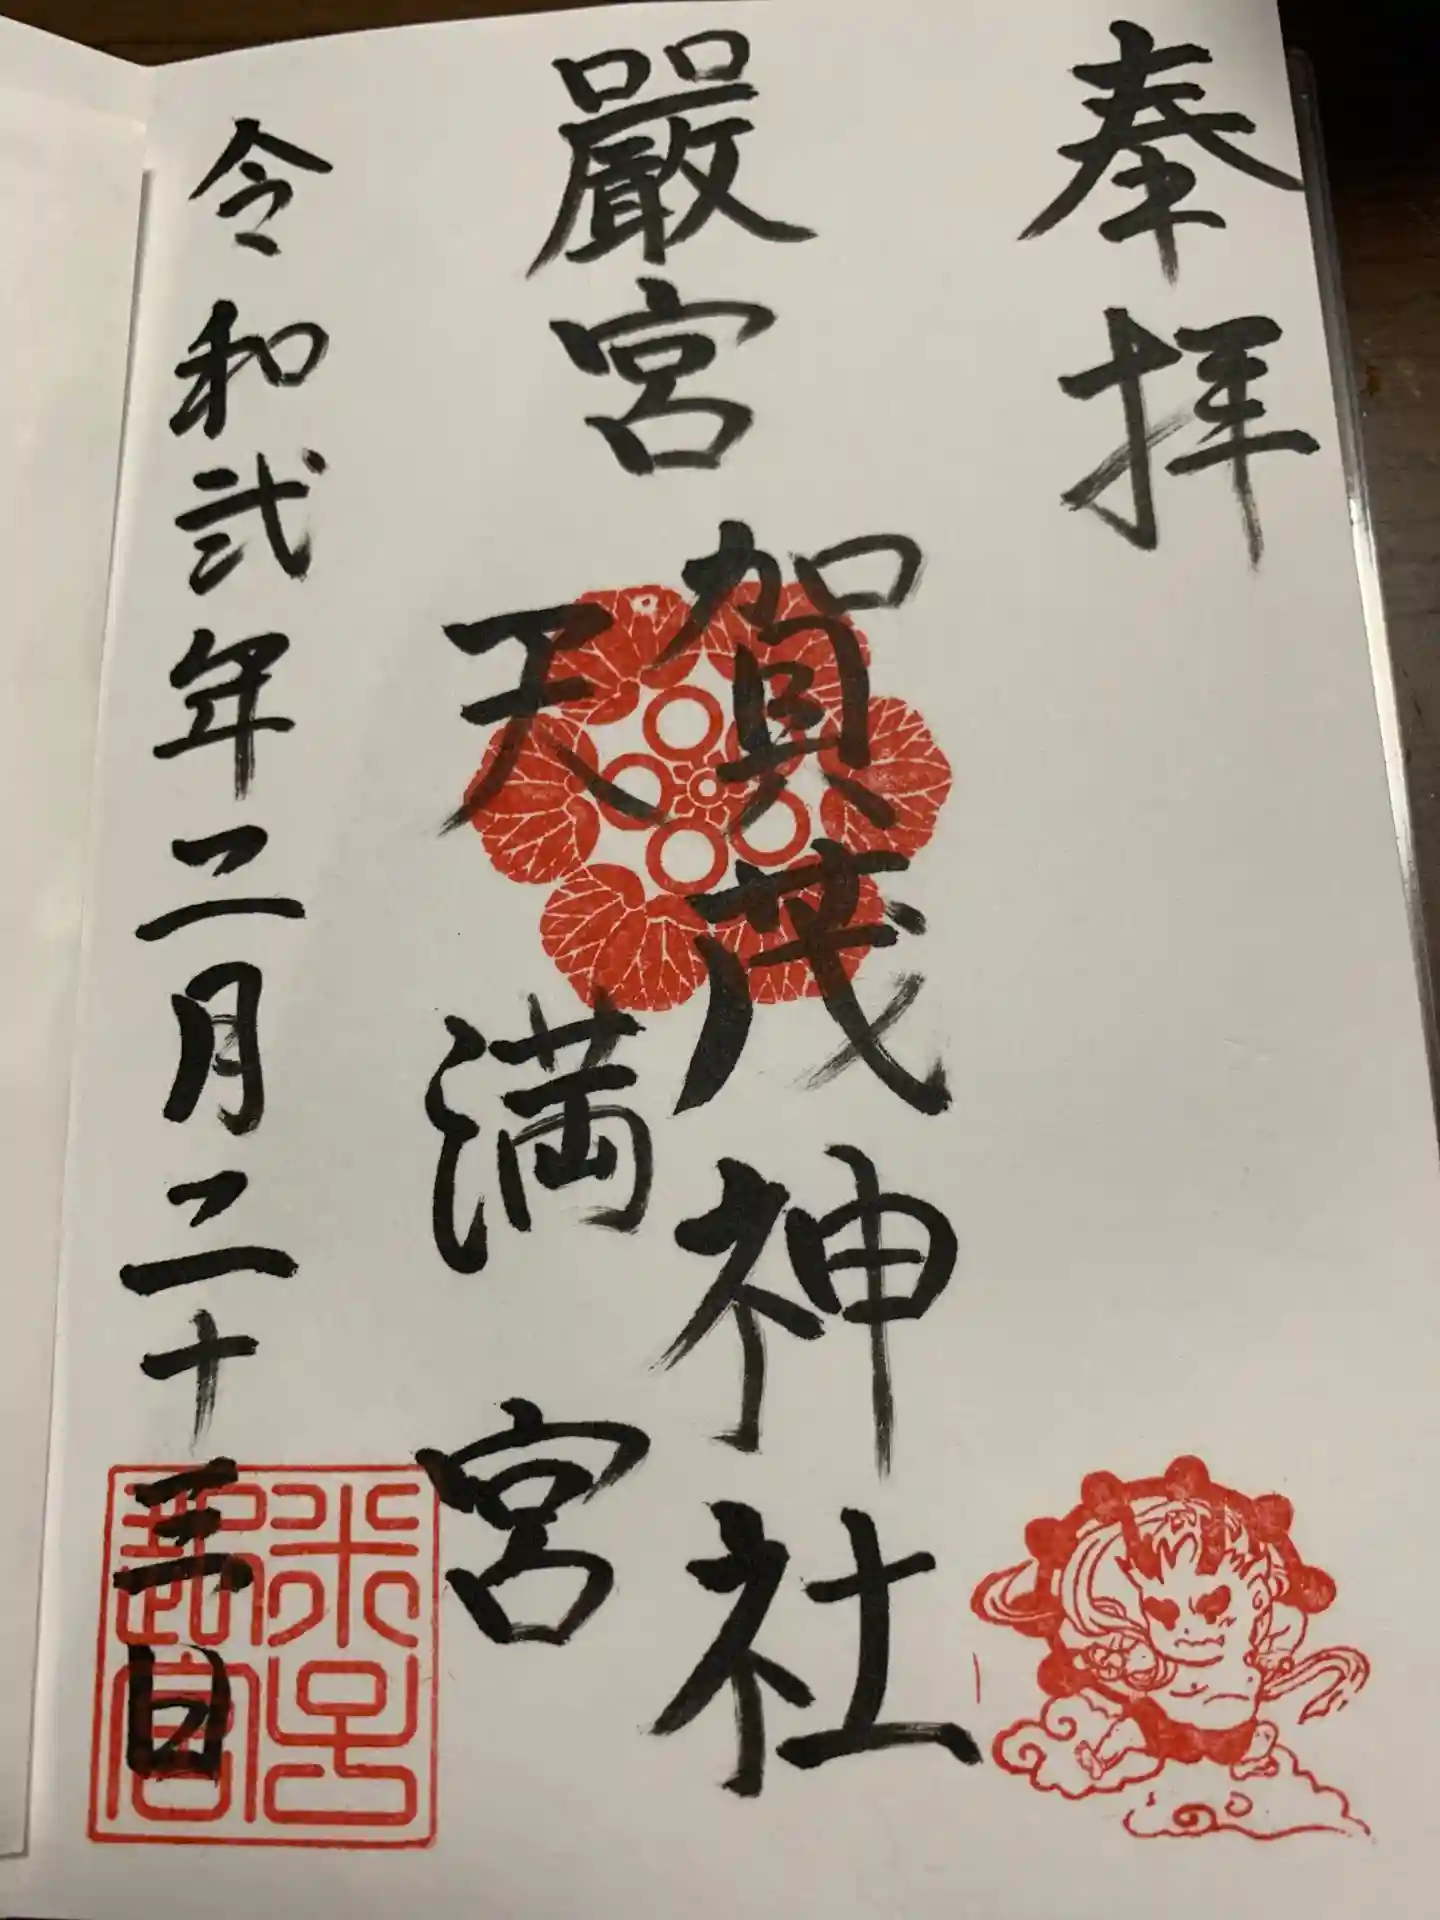 奉拝
嚴宮
賀茂神社
天満宮
令和弐年二月二十三日
米子